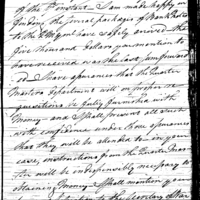 of the 8th instant I am made happy in
finding the several packages of Bank Notes
to the Agent have safely arrived the
five thousand dollars you mention to
have received was the last sum forward
ed I have assurances that the Quarter
Masters department will on proper re
quisitions be fully furnished with
money and I shall present all such
with confidence under those assurances
that they will be attended to in your
case, instructions from the Quarter Mas
ter will be indispensibly necessary to
obtaining money I shall mention your
to the Secretary of War